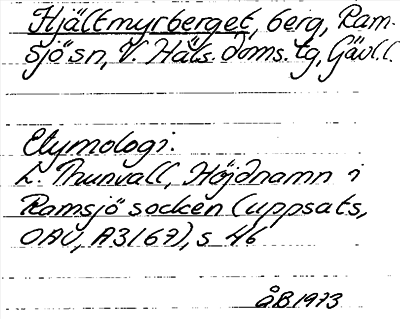 Hjältmyrberget, berg, Ram-
sjö sn, V. Häls. doms. tg, Gävl. l.
Etymologi:
L. Thunvall, Höjdnamn i
Ramsjö socken (uppsats,
OAU, A3167), s 46
ÅB 1973